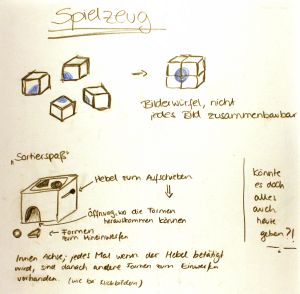 Spielzeug
Bilderwürfel, nicht
jedes Bild zusammenbaubar
„Sortierspaß"
Hebel zum Aufschieben
Öffnung, wo die Formen
herauskommen können
Formen
zum Hineinwerfen
Innen Achse, jedes Mal wenn der Hebel betätigt
wird, sind danach andere Formen zum Einwerfen
vorhanden. (wie bei Klickbildern)
könnte
es doch
alles
auch
heute
geben?!